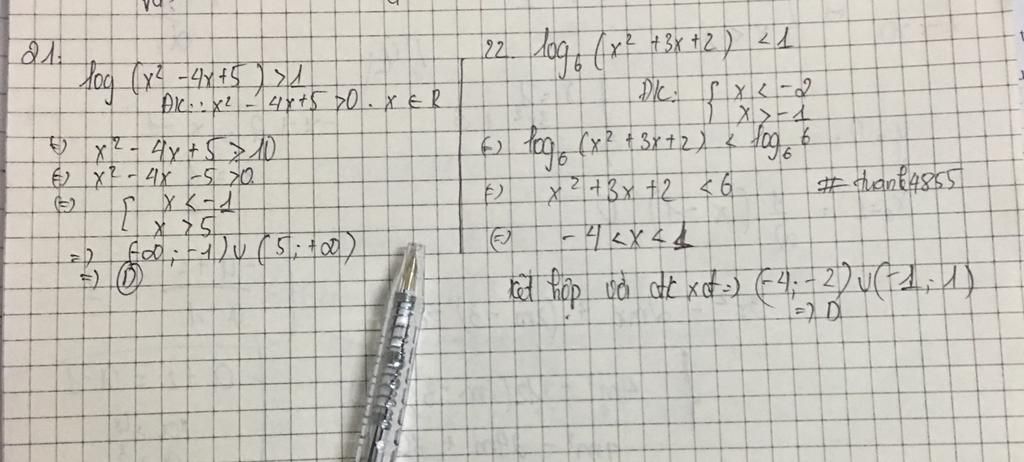 21.
log (x² - 4x+5) >1
ĐK: x² - 4x+5 >0. x ∈ R
(=) x² - 4x +5 >10
(=) x² - 4x -5 >0
(=) [ x < -1
x > 5
=> (-∞; -1) ∪ (5; +∞)
=> D
22. log₆ (x² +3x+2) < 1
ĐK: { x < -2
x > -1
(=) log₆ (x² +3x+2) < log₆ 6
(=) x² +3x+2 < 6
(=) -4 < x < 1
kết hợp với đk xđ => (-4; -2) ∪ (-1; 1)
=> D